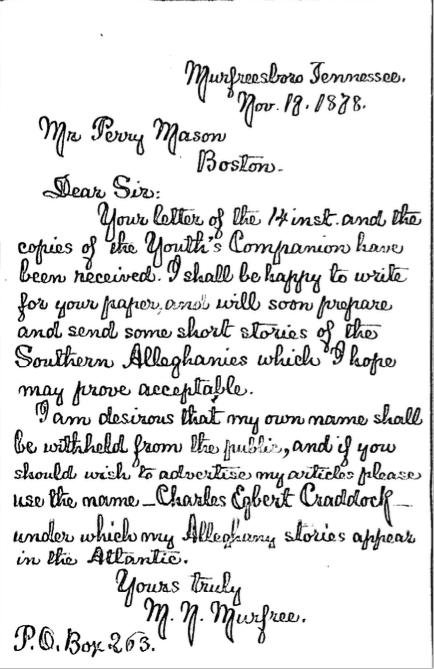 Murfreesboro Tennessee.
Nov. 19. 1878.
Mr Perry Mason
Boston.
Dear Sir:
Your letter of the 14 inst. and the
copies of the Youth's Companion have
been received. I shall be happy to write
for your paper, and will soon prepare
and send some short stories of the
Southern Alleghanies which I hope
may prove acceptable.
I am desirous that my own name shall
be withheld from the public, and if you
should wish to advertise my articles please
use the name – Charles Egbert Craddock –
under which my Alleghany stories appear
in the Atlantic.
Yours truly
M. N. Murfree.
P.O. Box 263.